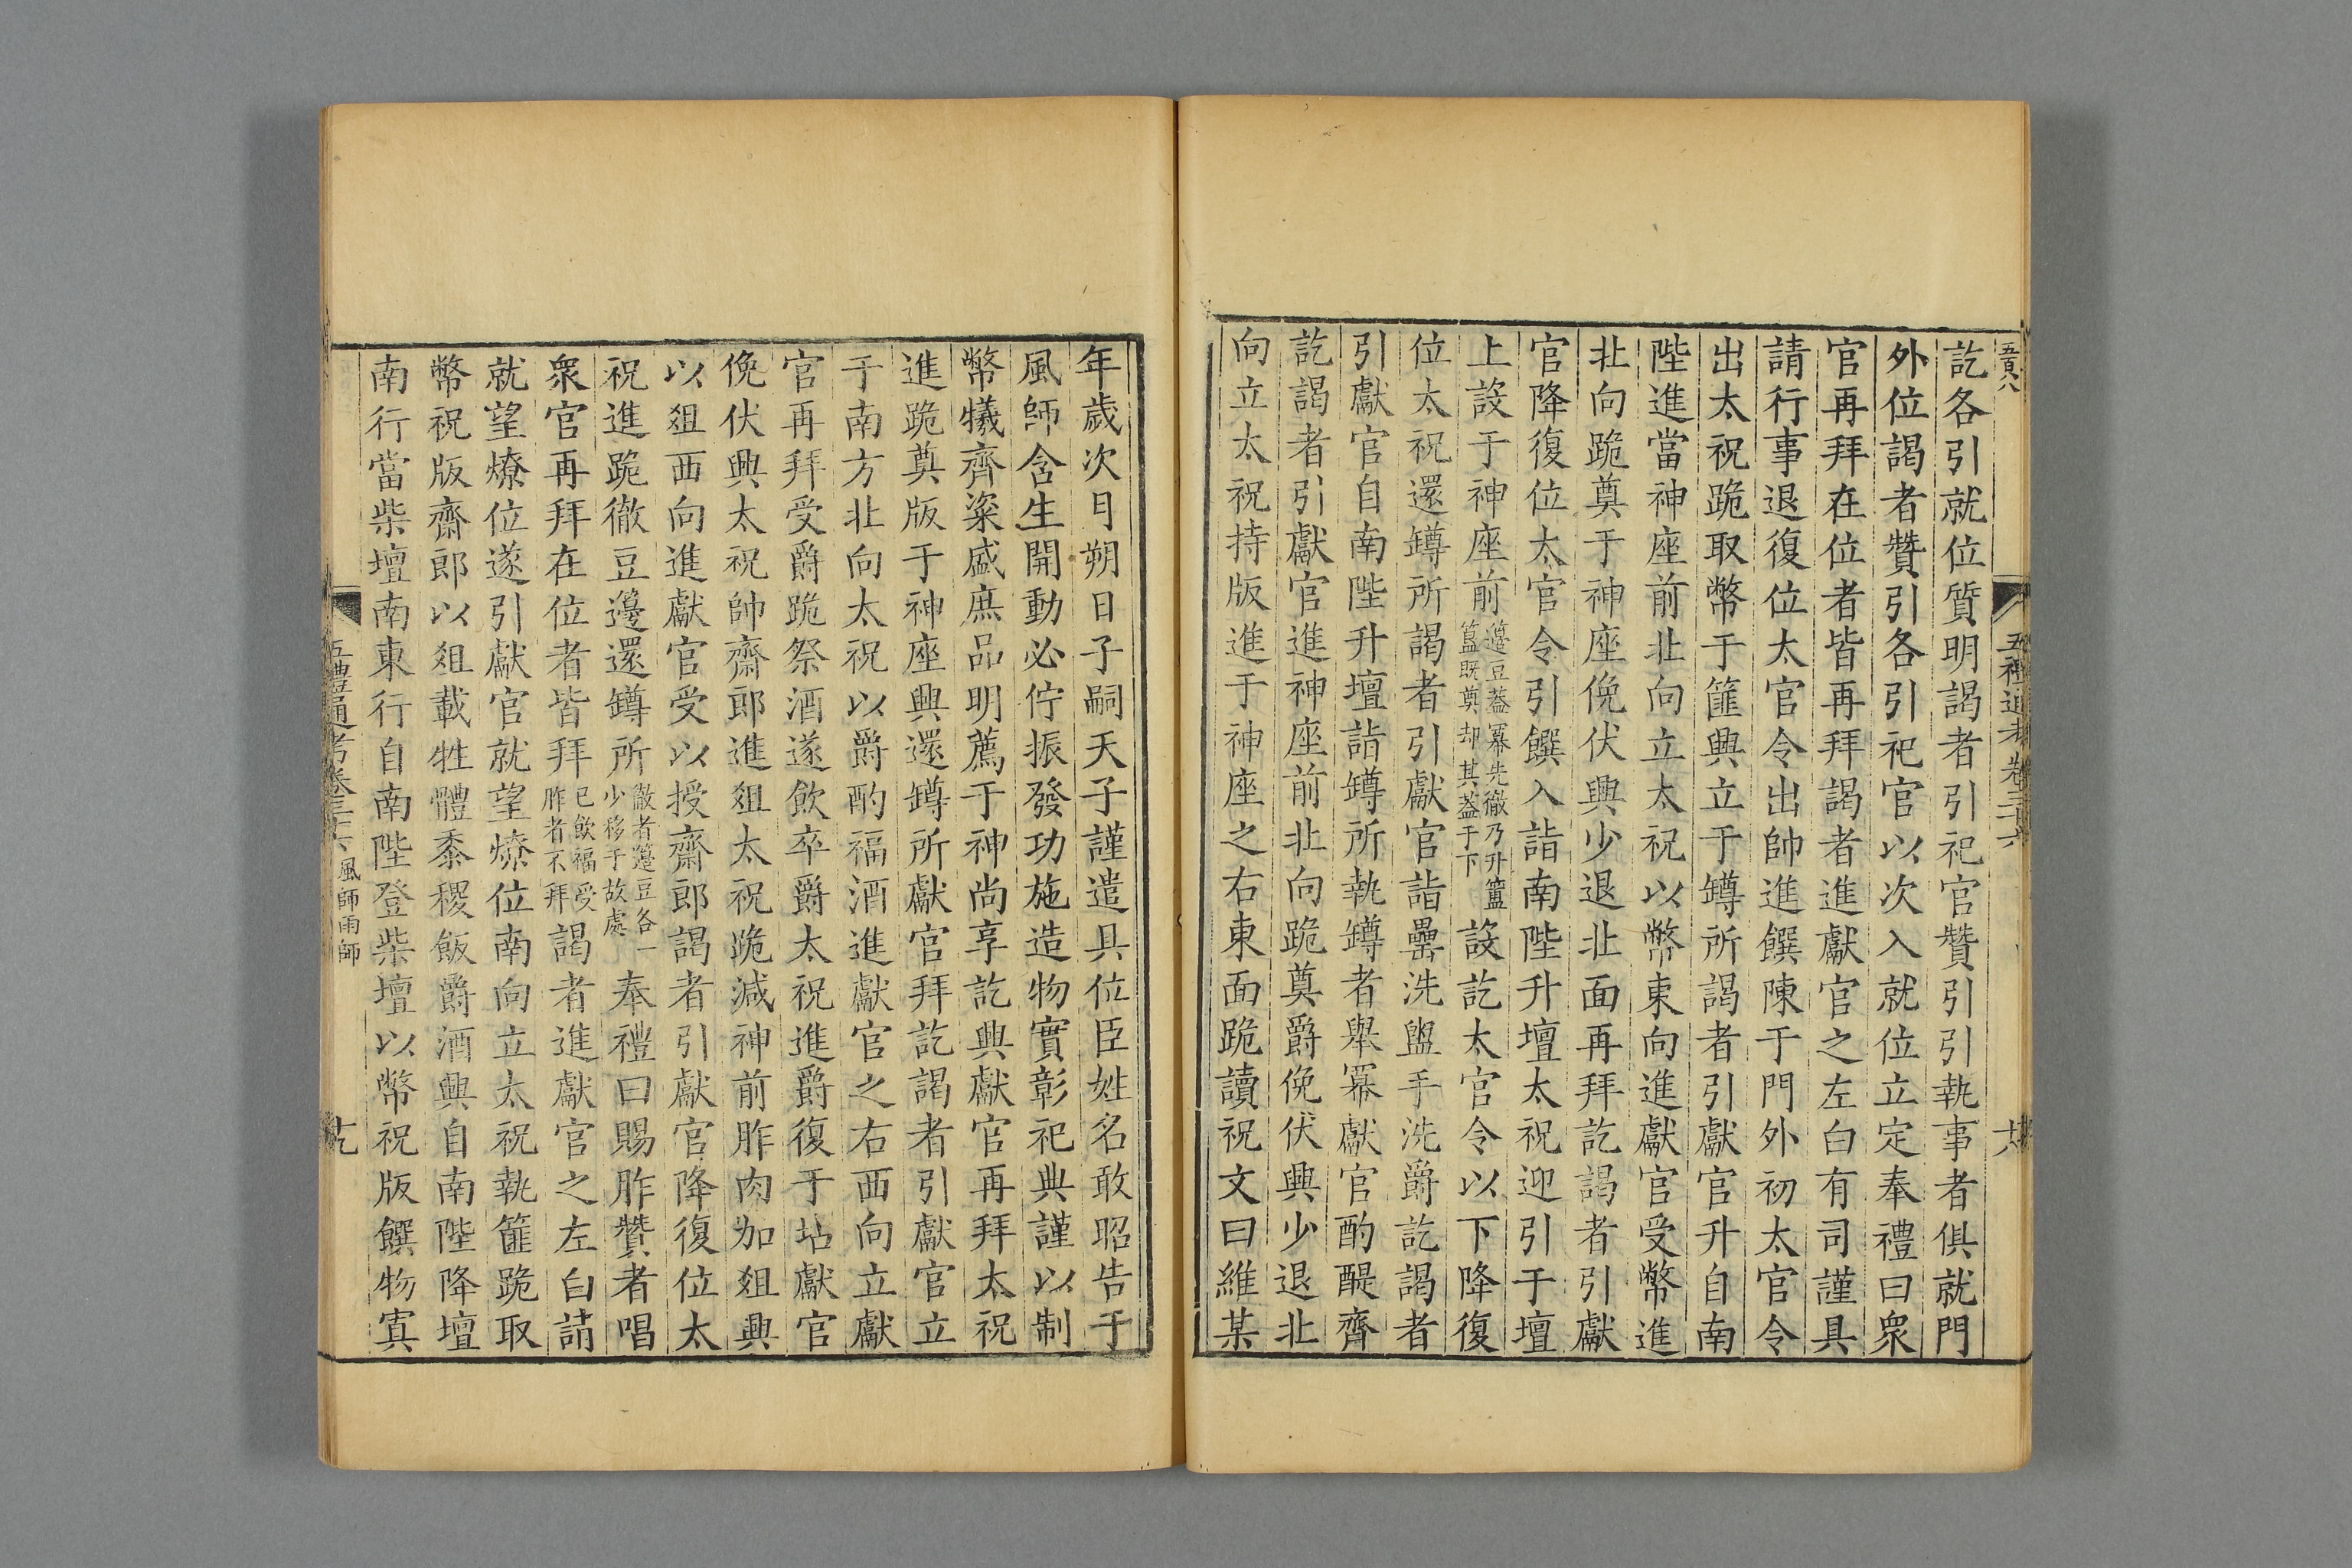 五百八
五禮通考卷三十六
訖各引就位質明謁者引祀官贊引引執事者俱就門
外位謁者贊引各引祀官以次入就位立定奉禮曰衆
官再拜在位者皆再拜謁者進獻官之左白有司謹具
請行事退復位太官令出帥進饌陳于門外初太官令
出太祝跪取幣于篚興立于罇所謁者引獻官升自南
陛進當神座前北向立太祝以幣東向進獻官受幣進
北向跪奠于神座俛伏興少退北面再拜訖謁者引獻
官降復位太官令引饌入詣南陛升壇太祝迎引于壇
上設于神座前籩豆蓋冪先徹乃升簠簋既奠却其蓋于下設訖太官令以下降復
位太祝還罇所謁者引獻官詣罍洗盥手洗爵訖謁者
引獻官自南陛升壇詣罇所執罇者舉冪獻官酌醍齊
訖謁者引獻官進神座前北向跪奠爵俛伏興少退北
向立太祝持版進于神座之右東面跪讀祝文曰維某
年歲次月朔日子嗣天子謹遣具位臣姓名敢昭告于
風師含生開動必佇振發功施造物實彰祀典謹以制
幣犧齊粢盛庶品明薦于神尚享訖興獻官再拜太祝
進跪奠版于神座興還罇所獻官拜訖謁者引獻官立
于南方北向太祝以爵酌福酒進獻官之右西向立獻
官再拜受爵跪祭酒遂飲卒爵太祝進爵復于坫獻官
俛伏興太祝帥齋郎進俎太祝跪減神前胙肉加俎興
以俎西向進獻官受以授齋郎謁者引獻官降復位太
祝進跪徹豆籩還罇所徹者籩豆各一少移于故處奉禮曰賜胙贊者唱
衆官再拜在位者皆拜已飲福受胙者不拜謁者進獻官之左白請
就望燎位遂引獻官就望燎位南向立太祝執篚跪取
幣祝版齋郎以俎載牲體黍稷飯爵酒興自南陛降壇
南行當柴壇南東行自南陛登柴壇以幣祝版饌物寘
五禮通考卷三十六 風師雨師